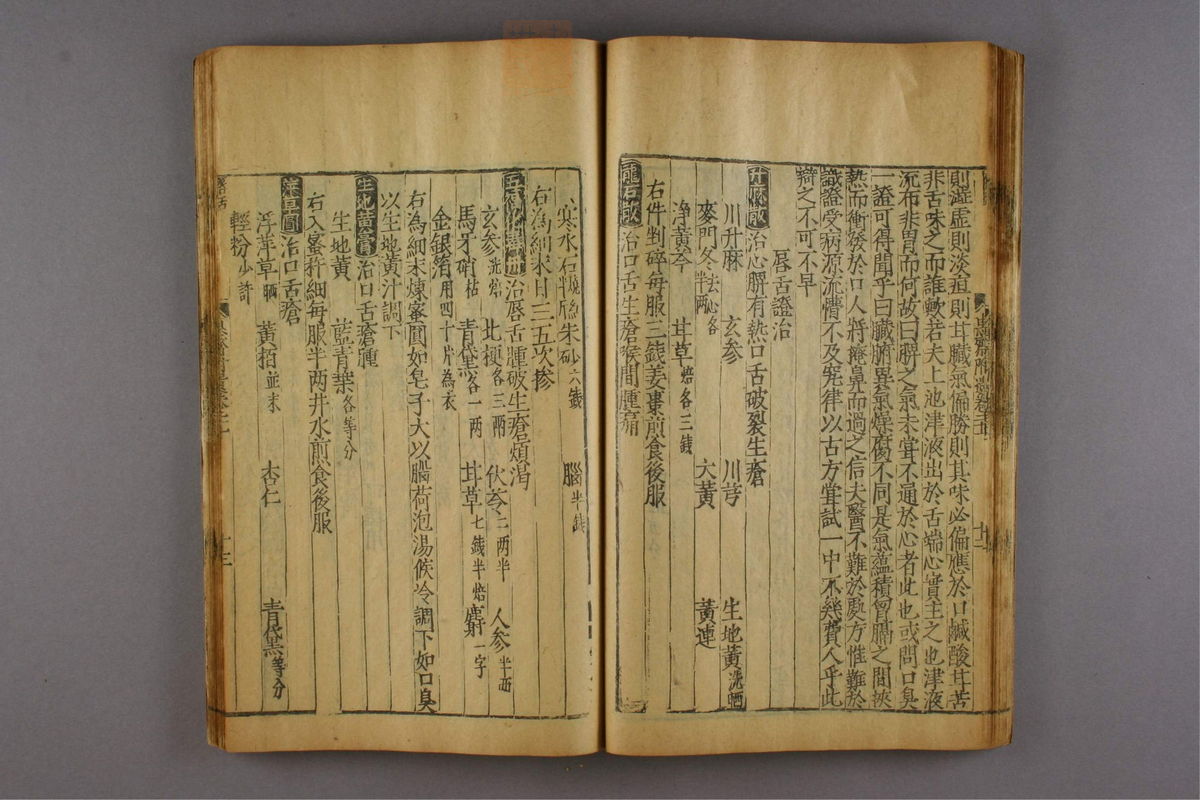 則澁虛則淡疸則甘臟氣偏勝則其味必偏應於口鹹酸甘苦
非舌味之而誰歟若夫上池津液出於舌端心實主之也津液
流布非胃而何故曰脾之氣未嘗不通於心者此也或問口臭
一證可得聞乎曰臟腑異氣燥腐不同是氣蘊積會膈之間挾
熱而衝發於口人將掩鼻而過之信夫醫不難於處方惟難於
識證受病源流懵不及究律以古方嘗試一中不幾費人乎此
辯之不可不早
唇舌證治
升麻散 治心脾有熱口舌破裂生瘡
川升麻 玄参 川芎 生地黃洗晒
麥門冬去心各半兩 大黃 黃連
淨黃芩 甘草焙各三錢
右件剉碎每服三錢姜棗煎食後服
龍石散 治口舌生瘡喉間腫痛
寒水石燒半斤 朱砂六錢 腦半錢
右為細末日三五次摻
治唇舌腫破生瘡煩渴
玄参洗焙 北梗各三兩 伏苓二两半 人参半两
馬牙硝枯 青黛各一两 甘草七錢半焙 麝一字
金銀箔用四十片為衣
右為細末煉蜜圓如皂子大以腦荷泡湯候冷調下如口臭
以生地黃汁調下
生地黃膏 治口舌瘡腫
生地黃 藍青葉各等分
右入蜜杵細每服半两井水煎食後服
治口舌瘡
浮萍草晒 黃栢並末 杏仁 青黛等分
輕粉少許
十三